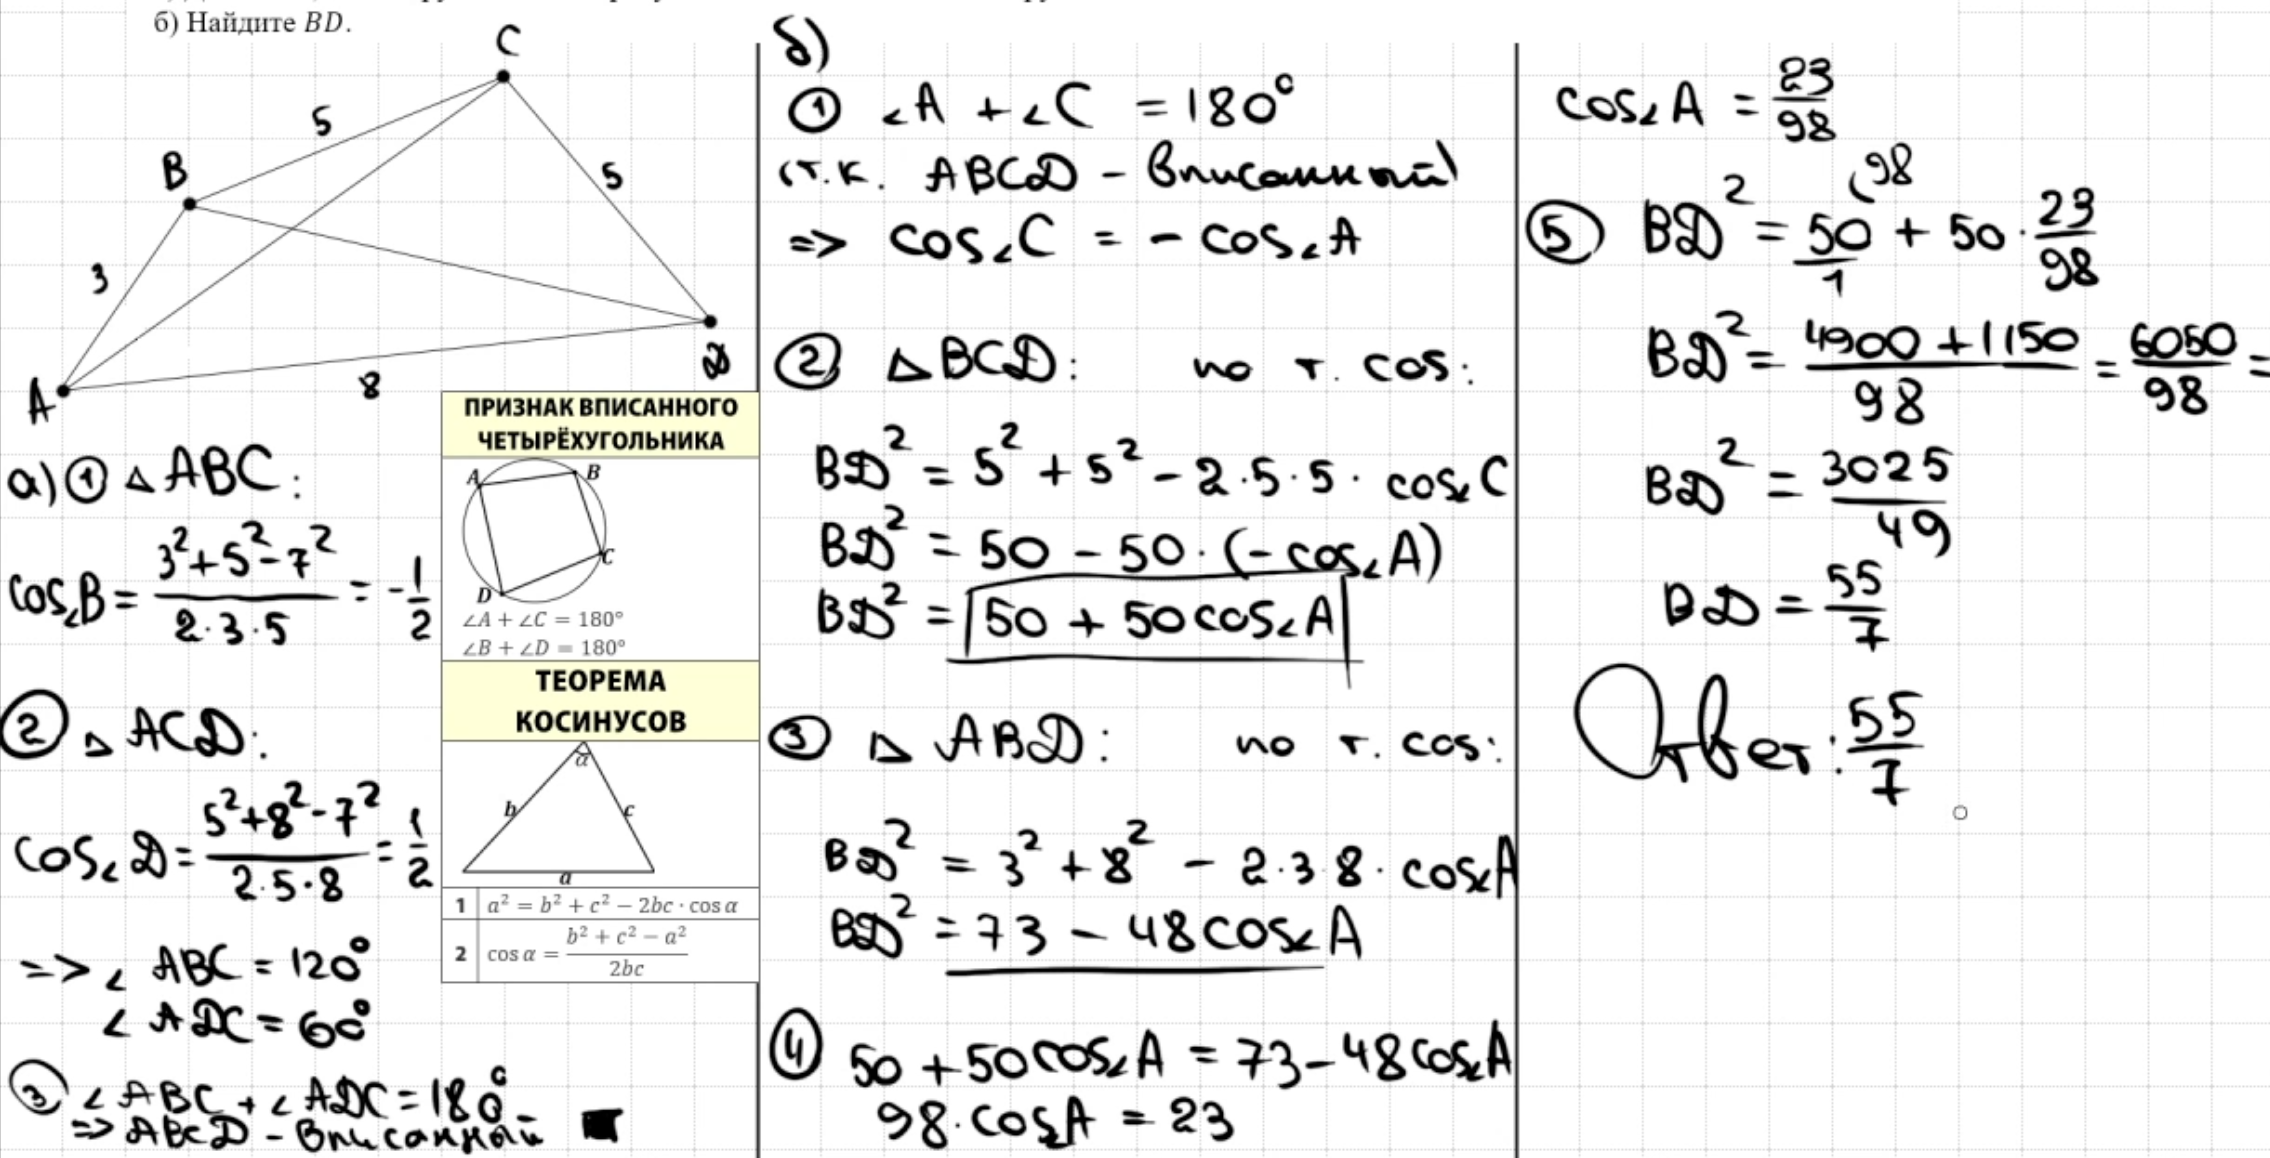 б) Найдите BD.
C
5
B
5
3
A
8
D
а) ① △ ABC:
cos∠B = (3² + 5² - 7²)/(2·3·5) = -1/2
② △ ACD:
cos∠D = (5² + 8² - 7²)/(2·5·8) = 1/2
=> ∠ ABC = 120°
∠ ADC = 60°
③ ∠ ABC + ∠ ADC = 180°
=> ABCD - вписанный ■
ПРИЗНАК ВПИСАННОГО
ЧЕТЫРЁХУГОЛЬНИКА
A
B
C
D
∠A + ∠C = 180°
∠B + ∠D = 180°
ТЕОРЕМА
КОСИНУСОВ
α
b
c
a
1 a² = b² + c² − 2bc · cos α
2 cos α = (b² + c² − a²)/(2bc)
б)
① ∠A + ∠C = 180°
(т.к. ABCD - вписанный)
=> cos∠C = - cos∠A
② △ BCD: по т. cos:
BD² = 5² + 5² - 2·5·5· cos∠C
BD² = 50 - 50·(- cos∠A)
BD² = 50 + 50cos∠A
③ △ ABD: по т. cos:
BD² = 3² + 8² - 2·3·8· cos∠A
BD² = 73 - 48cos∠A
④ 50 + 50cos∠A = 73 - 48cos∠A
98·cos∠A = 23
cos∠A = 23/98
(98
⑤ BD² = 50/1 + 50·23/98
BD² = (4900 + 1150)/98 = 6050/98 =
BD² = 3025/49
BD = 55/7
Ответ: 55/7